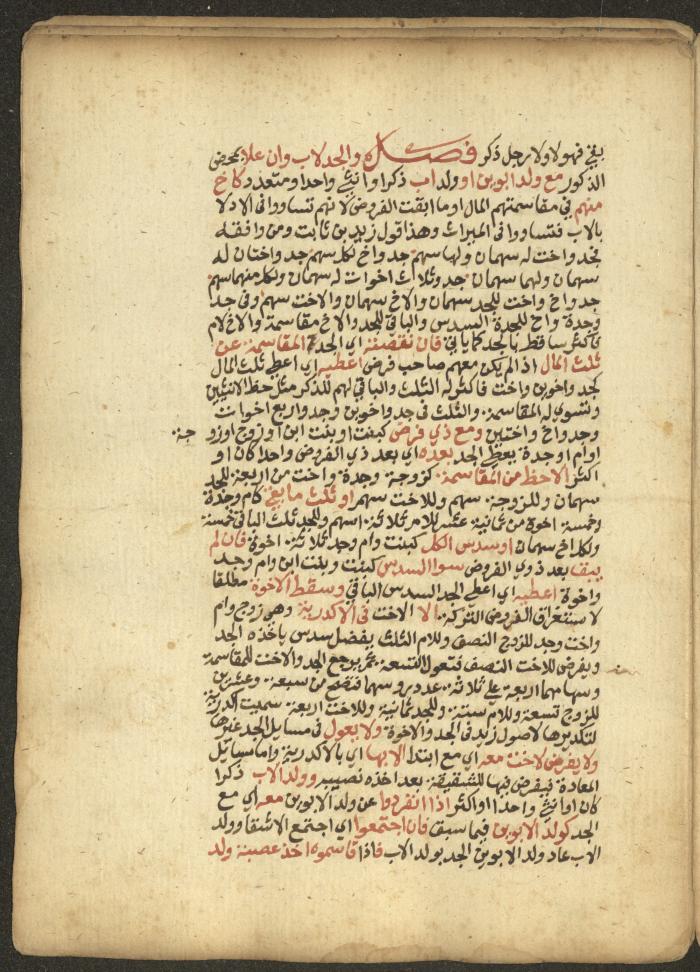 بقي فهو لاولى رجل ذكر فصل والجد لاب وان علا بمحض
الذكور مع ولد ابوين او ولد اب ذكرا او انثي واحدا او متعدد كاخ
منهم في مقاسمتهم المال او ما ابقت الفروض لانهم تساووا في الادلا
بالاب فتساووا في الميراث وهذا قول زيد بن ثابت ومن وافقه
فجد واخت له سهمان ولها سهم جد واخ لكل سهم جد واختان له
سهمان ولهما سهمان جد وثلاث اخوات له سهمان ولكل منهما سهم
جد واخ واخت للجد سهمان والاخ سهمان والاخت سهم وفي جد
وجدة واخ للجدة السدس والباقي للجد والاخ مقاسمة والاخ لام
فاكثر ساقط بالجد كما ياتي فان نقصته اي الجد المقاسمة عن
ثلث المال اذا لم يكن معهم صاحب فرض اعطيه اي اعطي ثلث المال
كجد واخوين واخت فاكثر له الثلث والباقي لهم للذكر مثل حظ الانثيين
وتستوي له المقاسمة والثلث في جد واخوين وجد واربع اخوات
وجد واخ واختين ومع ذي فرض كبنت او بنت ابن او زوج او زوجة
او ام او جدة يعطي الجد بعده اي بعد ذي الفروض واحدا كان او
اكثر الاحظ من المقاسمة كزوجة وجدة واخت من اربعة للجد
سهمان وللزوجة سهم وللاخت سهم او ثلث ما بقي كام وجدة
وخمسة اخوة من ثمانية عشر للام ثلاثة اسهم وللجد ثلث الباقي خمسة
ولكل اخ سهمان او سدس الكل كبنت وام وجد وثلاثة اخوة فان لم
يبق بعد ذوي الفروض سوا السدس كبنت وبنت ابن وام وجد
واخوة اعطيه اي اعطي الجد السدس الباقي وسقط الاخوة مطلقا
لاستغراق الفروض التركة الا الاخت في الاكدرية وهي زوج وام
واخت وجد للزوج النصف وللام الثلث يفضل سدس ياخذه الجد
ويفرض للاخت النصف فتعول لتسعة ثم يرجع الجد والاخت للمقاسمة
وسهامهما اربعة علي ثلاثة عدد روسهما فتصح من سبعة وعشرين
للزوج تسعة وللام ستة وللجد ثمانية وللاخت اربعة سميت اكدرية
لتكديرها لاصول زيد في الجد والاخوة ولا يعول في مسايل الجد غيرها
ولا يفرض لاخت معه اي مع ابتدا الا بها اي بالاكدرية واما مسائل
المعادة فيفرض فيها للشقيقة بعد اخذه نصيبه وولد الاب ذكرا
كان او انثي واحدا او اكثر اذا انفردوا عن ولد الابوين معه اي مع
الجد كولد الابوين فيما سبق فان اجتمعوا اي اجتمع الاشقا وولد
الاب عاد ولد الابوين الجد بولد الاب فاذا قاسموه اخذ عصبة ولد